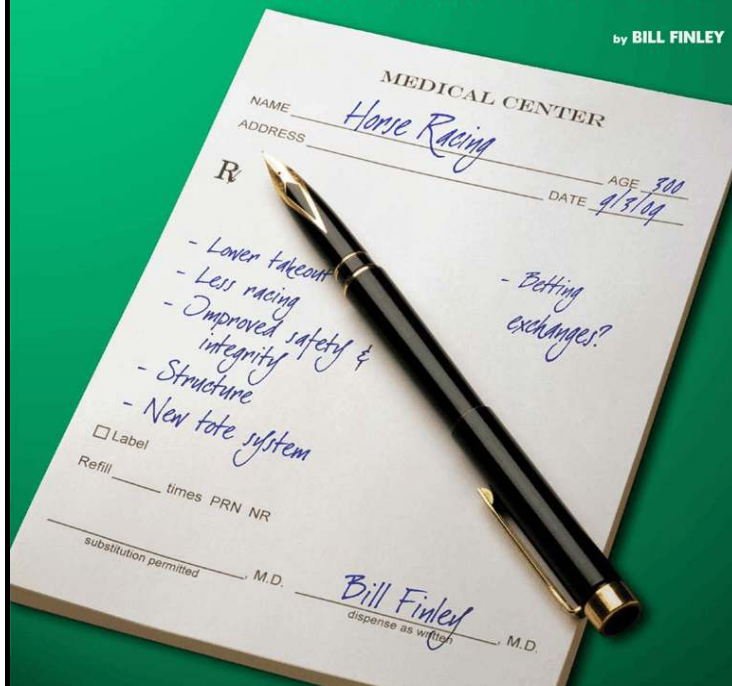 by BILL FINLEY
MEDICAL CENTER
NAME Horse Racing
ADDRESS
AGE 300
DATE 9/3/09
R
- Lower takeout
- Less racing
- Improved safety &
integrity
- Structure
- New tote system
- Betting
exchanges?
Label
Refill times PRN NR
substitution permitted , M.D.
Bill Finley , M.D.
dispense as written